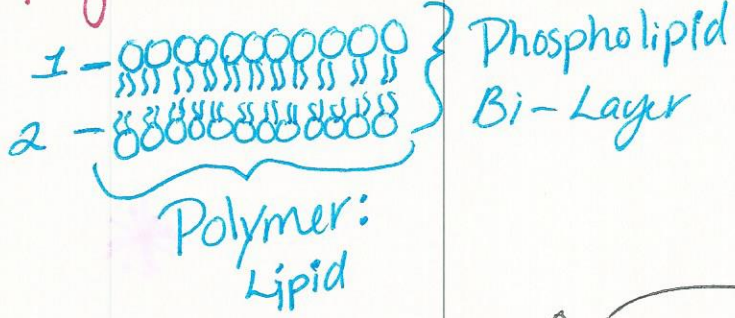 1 -
2 -
Phospholipid
Bi-Layer
Polymer:
Lipid